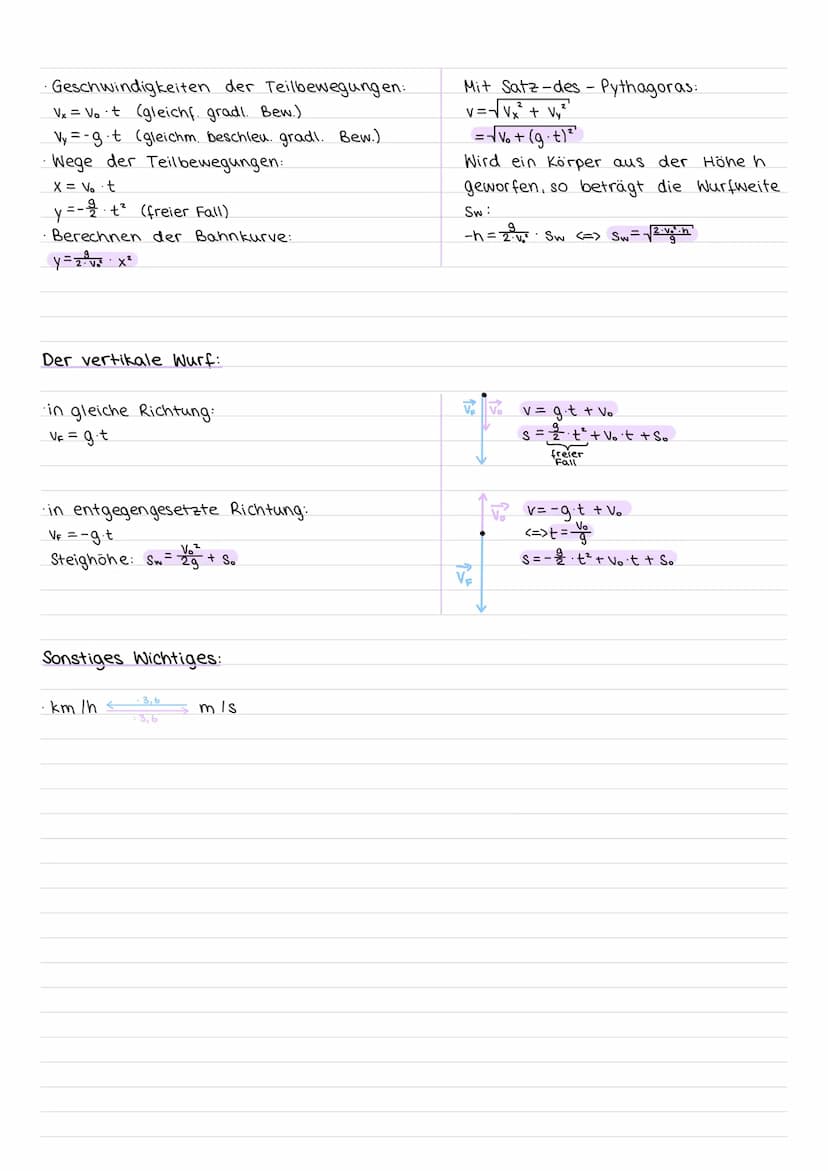 · Geschwindigkeiten der Teilbewegungen:
vₓ = v₀ · t (gleichf. gradl. Bew.)
v_y = -g · t (gleichm. beschleu. gradl. Bew.)
· Wege der Teilbewegungen:
x = v₀ · t
y = -g/2 · t² (freier Fall)
· Berechnen der Bahnkurve:
y = g/(2·v₀²) · x²
Mit Satz-des-Pythagoras:
v = √(vₓ² + v_y²)
= √(v₀ + (g·t)²)
Wird ein Körper aus der Höhe h
geworfen, so beträgt die Wurfweite
s_w:
-h = g/(2·v₀²) · s_w <=> s_w = √((2·v₀²·h)/g)
Der vertikale Wurf:
· in gleiche Richtung:
v_F = g·t
v_F v₀
v = g·t + v₀
s = g/2 · t² + v₀·t + s₀
freier
Fall
· in entgegengesetzte Richtung:
v_F = -g·t
Steighöhe: s_w = v₀²/2g + s₀
v₀
v_F
v = -g·t + v₀
<=> t = v₀/g
s = -g/2 · t² + v₀·t + s₀
Sonstiges Wichtiges:
· km/h · 3,6 m/s
· 3,6